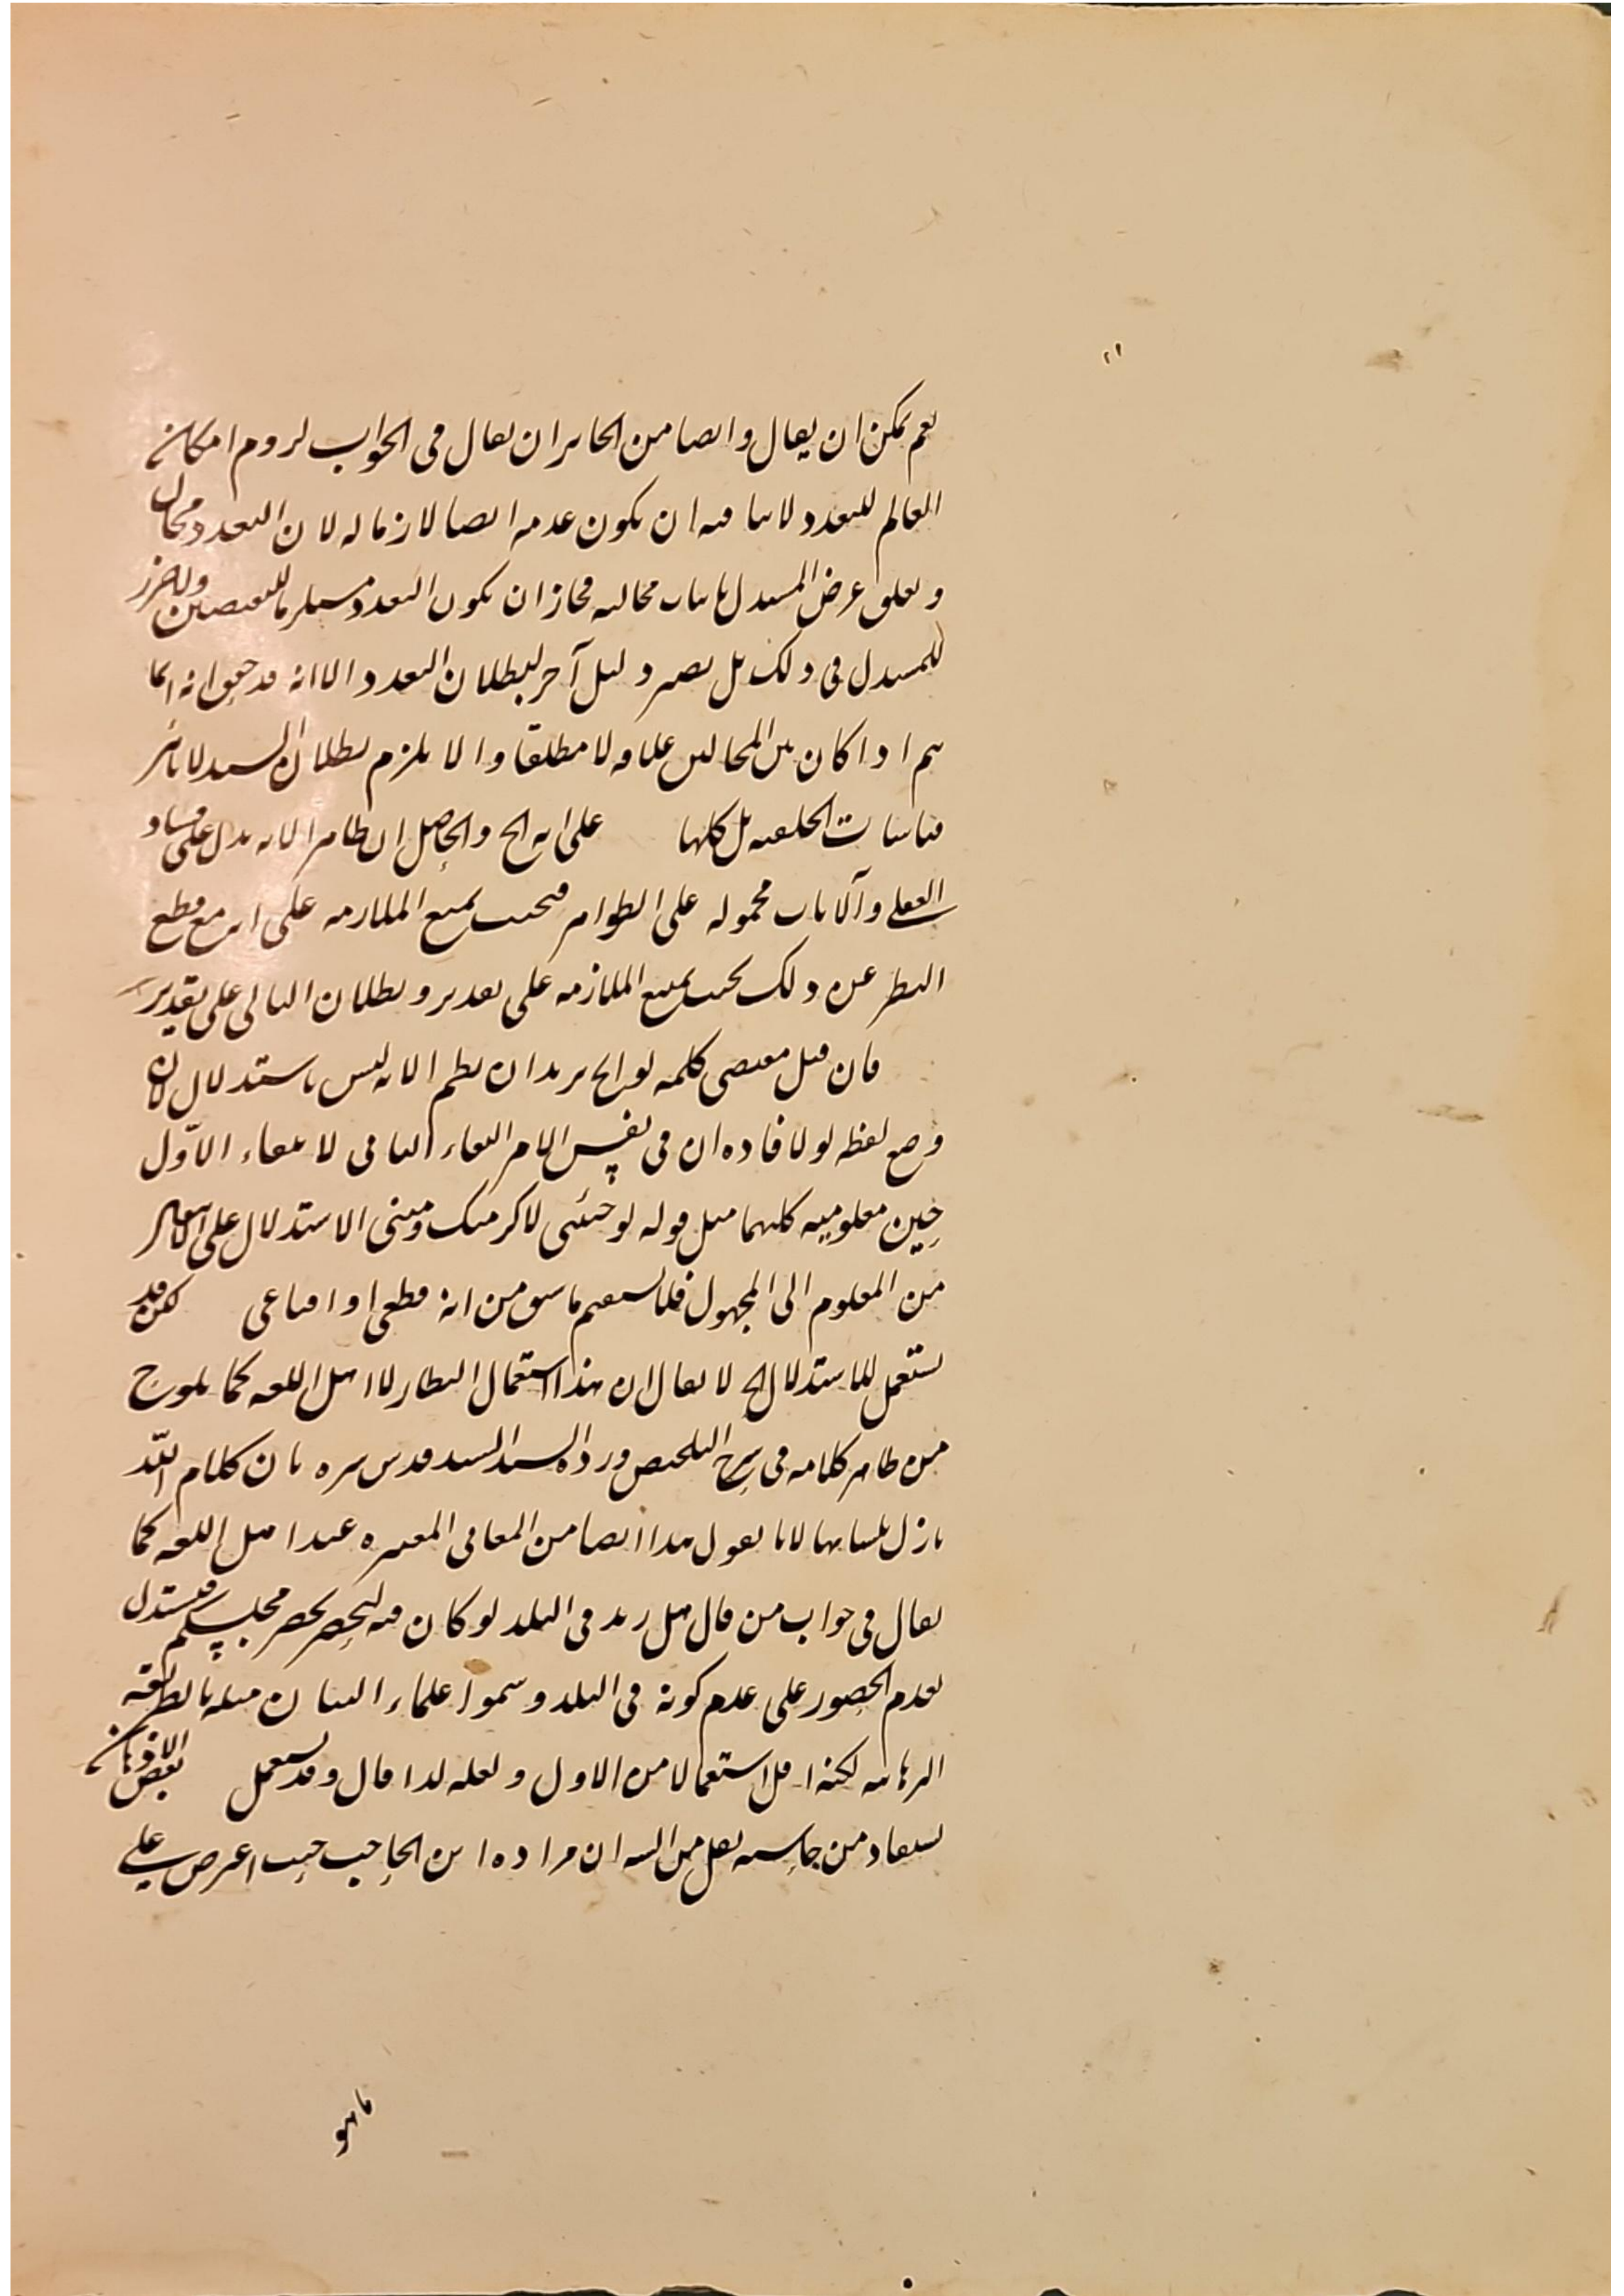 نعم يمكن ان يقال وايضا من الجائز ان يقال فى الجواب لزوم امكان
العالم للتعدد لا ينافيه ان يكون عدمه ايضا لازما له لان التعدد محال
وتعلق غرض المستدل باثبات محاليته فجاز ان يكون التعدد مستلزما للنقيضين ولا ضرر
للمستدل فى ذلك بل يصير دليل آخر لبطلان التعدد الا انه قد حقق انه انما
يتم اذا كان بين المحالين علاقه لا مطلقا والا يلزم بطلان
قياسات الخلفيه بل كلها على انه الح والحاصل ان ظاهر الايه يدل على فساد
الفعلى والآيات محموله على الظواهر فحينئذ يمنع الملازمه على انه مع قطع
النظر عن ذلك يمنع الملازمه على تقدير وبطلان التالى على تقدير
فان قيل مقتضى كلمه لو الح يريد ان نظم الايه ليس باستدلال لان
وضع لفظه لو لافاده ان فى نفس الامر انتفاء الثانى لانتفاء الاوّل
حين معلوميه كليهما مثل قوله لو جئتنى لاكرمتك ومبنى الاستدلال على الانتقال
من المعلوم الى المجهول فلا يستقيم ما سبق من انه قطعى او اقناعى لكن قد
تستعمل للاستدلال الح لا يقال ان هذا استعمال النظار لا اهل اللغه كما يلوح
من ظاهر كلامه فى شرح التلخيص ورده السيد السند قدس سره بان كلام اللّه
نازل بلسانها لانا نقول هذا ايضا من المعانى المعتبره عند اهل اللغه كما
يقال فى جواب من قال هل زيد فى البلد لو كان فيه ليحضر مجلسكم فيستدل
بعدم الحضور على عدم كونه فى البلد وسموا علماء البيان مثله بالطريقه
البرهانيه لكنه اقل استعمالا من الاول ولعله لذا قال وقد تستعمل بعض الاذهان
يستفاد من حاشيه نقل من ان مراده ابن الحاجب حيث اعترض على
ما هو